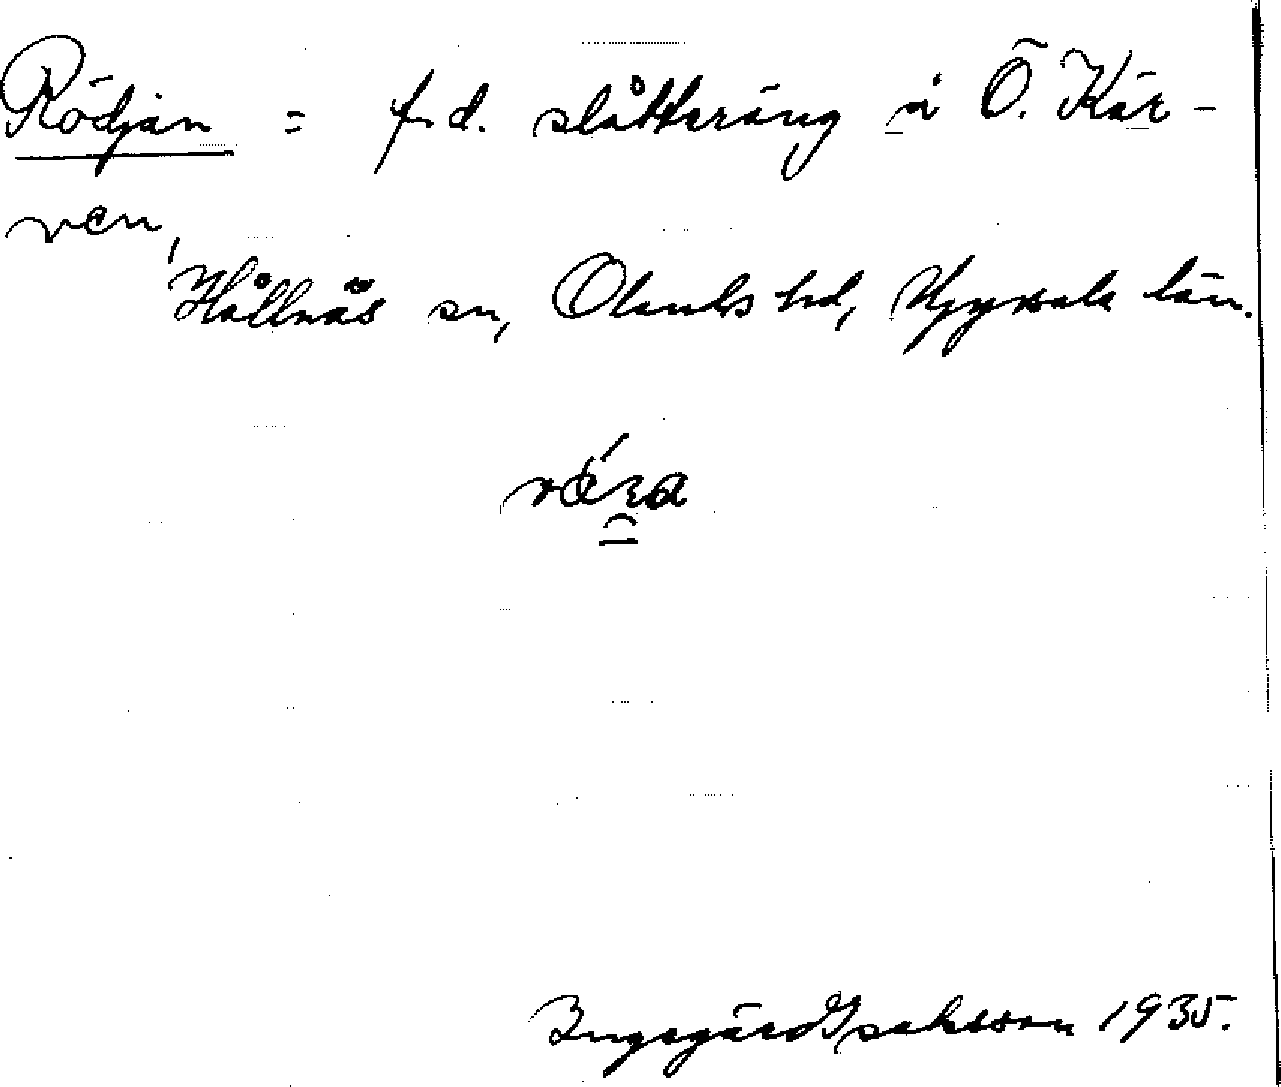 Rödjan = f.d. slåtteräng i Ö. Kär-
ven,
Hållnäs sn, Olands hd, Uppsala län.
Ingegärd Isaksson 1935.